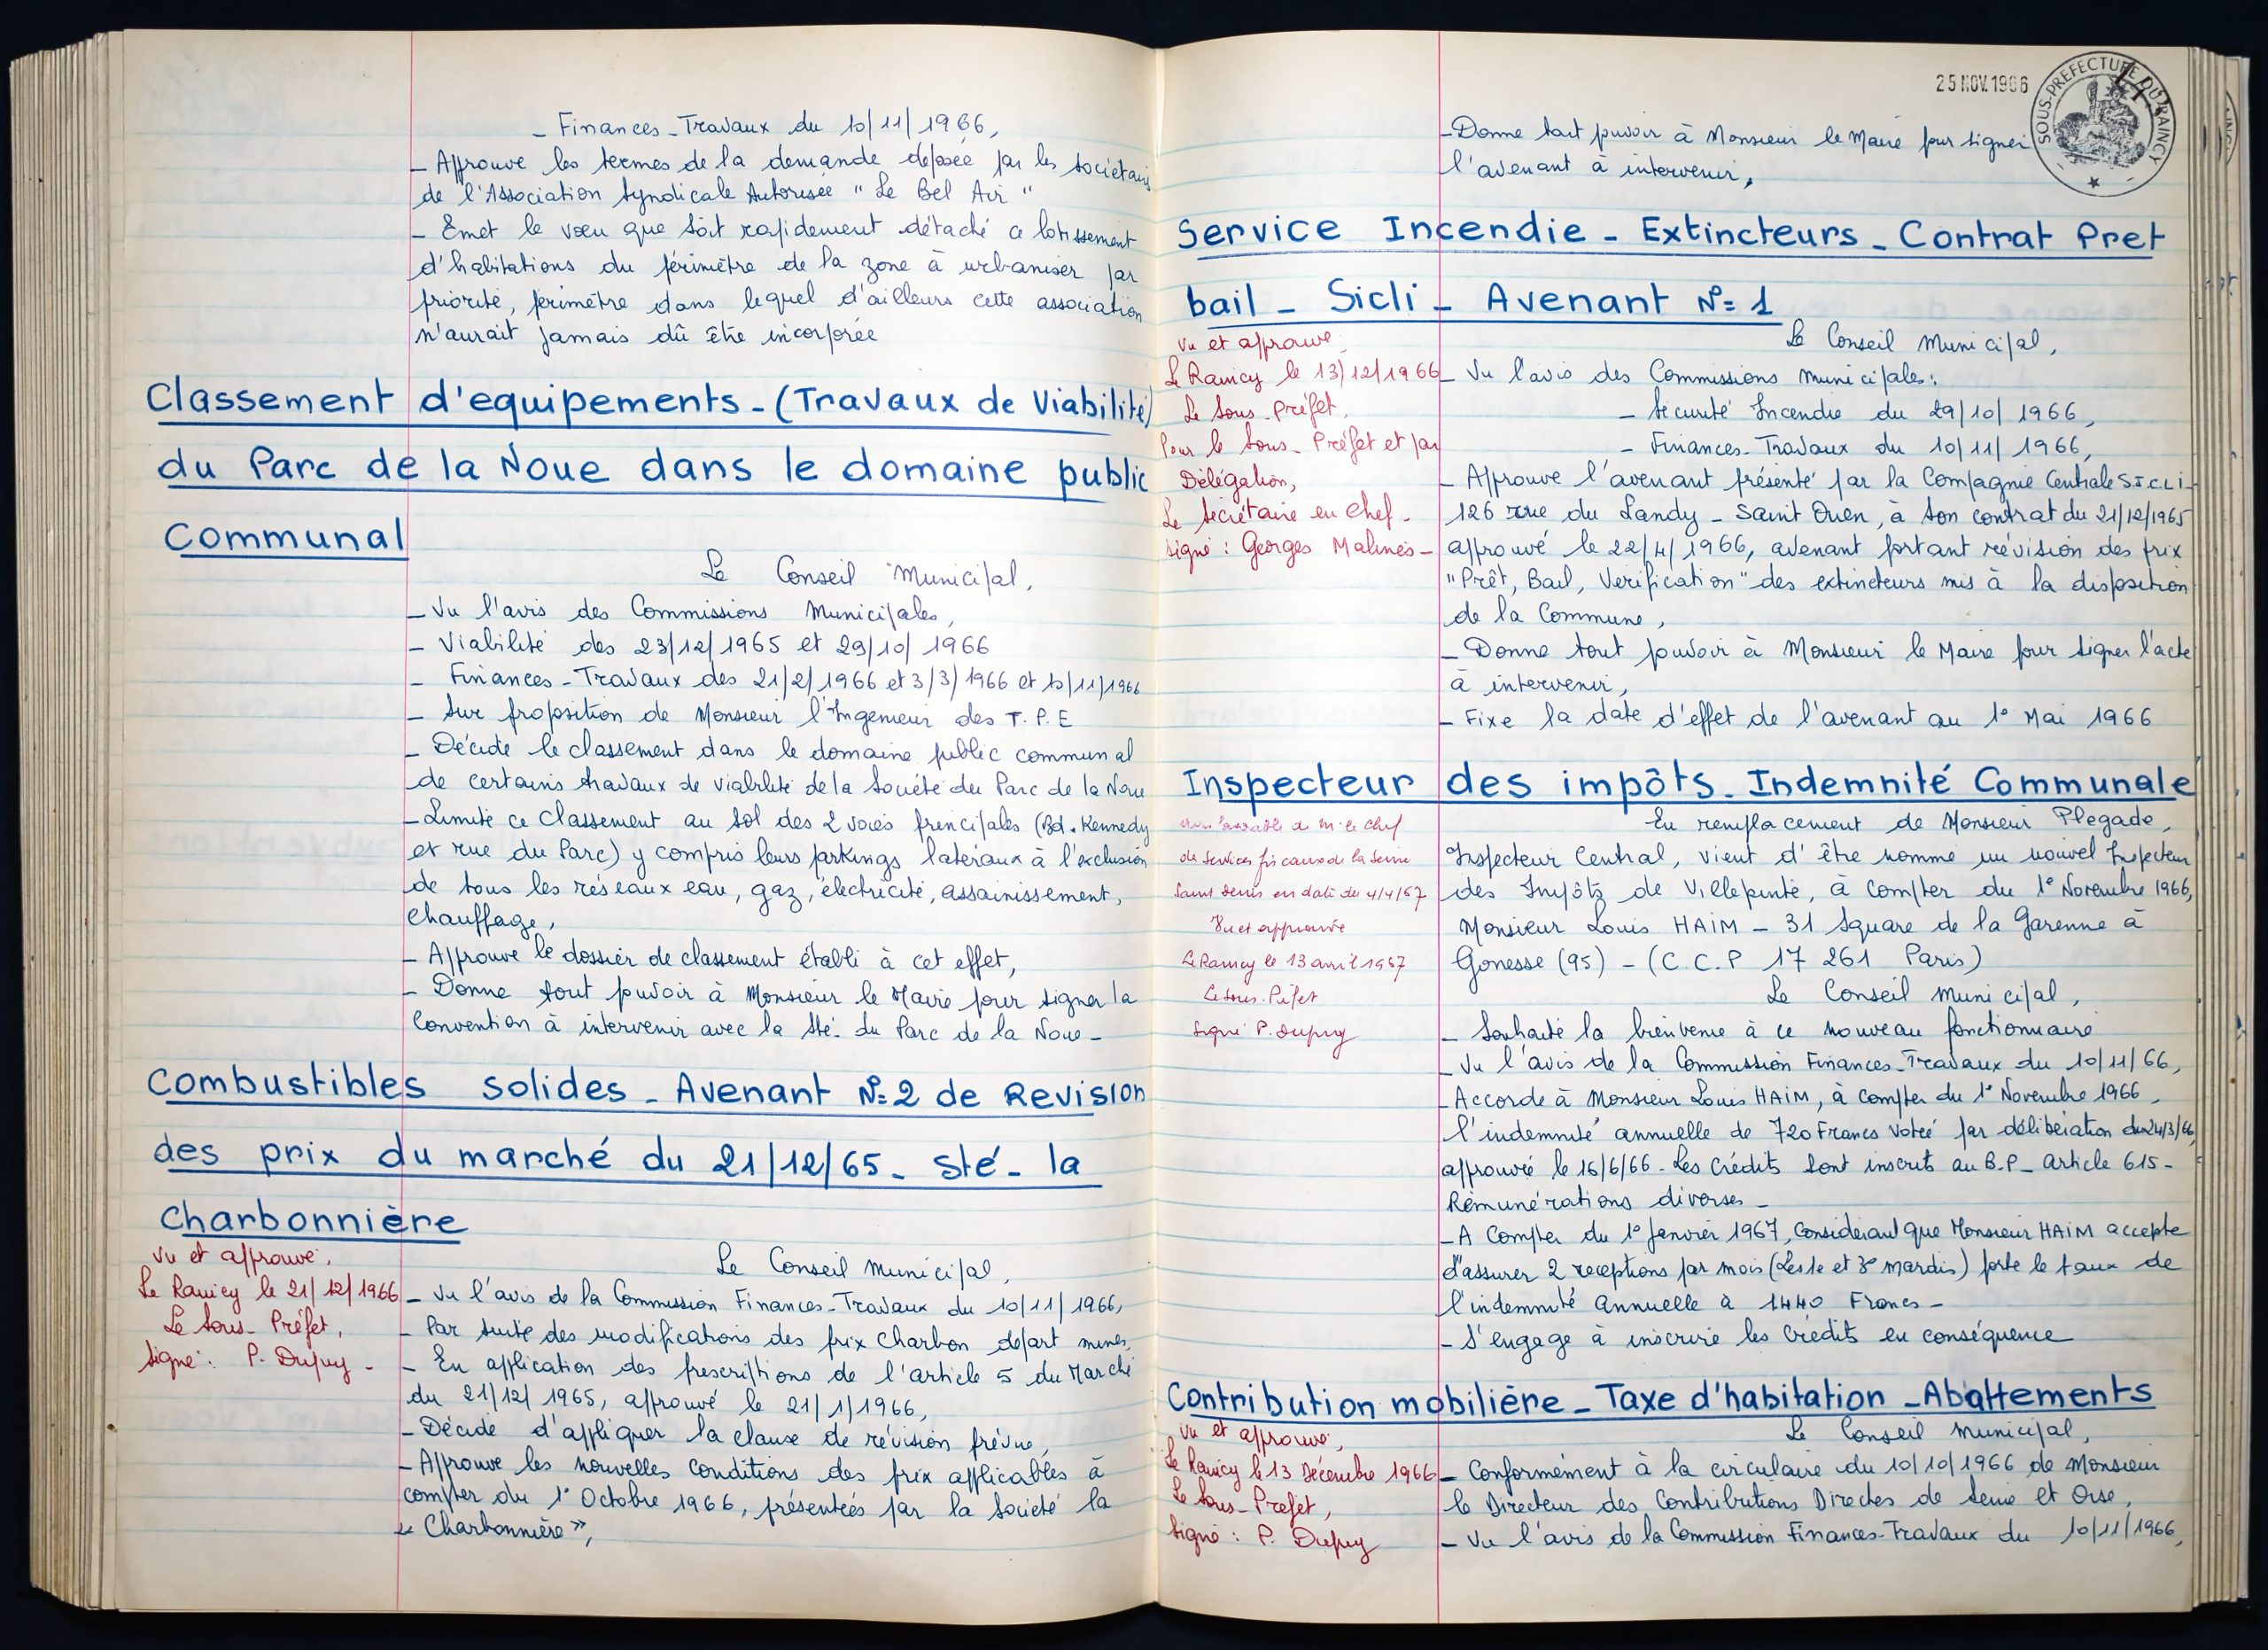 - Finances - Travaux du 10/11/1966,
- Approuve les termes de la demande déposée par les sociétaires
de l'Association Syndicale Autorisée "Le Bel Air"
- Emet le vœu que soit rapidement détaché ce lotissement
d'habitations du périmètre de la zone à urbaniser par
priorité, périmètre dans lequel d'ailleurs cette association
n'aurait jamais dû être incorporée
Classement d'equipements - (Travaux de Viabilité)
du Parc de la Noue dans le domaine public
Communal
Le Conseil Municipal,
- Vu l'avis des Commissions Municipales,
- Viabilité des 23/12/1965 et 29/10/1966
- Finances - Travaux des 21/2/1966 et 3/3/1966 et 10/11/1966
- Sur proposition de Monsieur l'Ingenieur des T.P.E
- Décide le classement dans le domaine public communal
de certains travaux de viabilité de la Société du Parc de la Noue
- Limite ce Classement au sol des 2 voies principales (Bd. Kennedy
et rue du Parc) y compris leurs parkings latéraux à l'exclusion
de tous les réseaux eau, gaz, électricité, assainissement,
chauffage,
- Approuve le dossier de classement établi à cet effet,
- Donne tout pouvoir à Monsieur le Maire pour signer la
Convention à intervenir avec la Sté. du Parc de la Noue -
Combustibles solides - Avenant N°= 2 de Revision
des prix du marché du 21/12/65 - Sté - la
Charbonnière
Vu et approuvé,
Le Raincy le 21/12/1966
Le Sous-Préfet,
Signé : P. Dupuy -
Le Conseil Municipal,
- Vu l'avis de la Commission Finances-Travaux du 10/11/1966,
- Par suite des modifications des prix Charbon départ mines,
- En application des prescriptions de l'article 5 du Marché
du 21/12/1965, approuvé le 21/1/1966,
- Décide d'appliquer la clause de révision prévue,
- Approuve les nouvelles conditions des prix applicables à
compter du 1° Octobre 1966, présentées par la Société la
« Charbonnière »,
25 NOV. 1966
SOUS-PREFECTURE DU RAINCY
- Donne tout pouvoir à Monsieur le Maire pour signer
l'avenant à intervenir,
Service Incendie - Extincteurs - Contrat Pret
bail - Sicli - Avenant N°= 1
Vu et approuvé,
Le Raincy le 13/12/1966
Le Sous-Préfet,
Pour le Sous-Préfet et par
Délégation,
Le Secrétaire en Chef -
signé : Georges Malinès -
Le Conseil Municipal,
- Vu l'avis des Commissions Municipales :
- Sécurité Incendie du 29/10/1966,
- Finances-Travaux du 10/11/1966,
- Approuve l'avenant présenté par la Compagnie Centrale S.I.C.L.I -
126 rue du Landy - Saint Ouen, à son contrat du 21/12/1965
approuvé le 22/4/1966, avenant portant révision des prix
"Prêt, Bail, Vérification" des extincteurs mis à la disposition
de la Commune,
- Donne tout pouvoir à Monsieur le Maire pour signer l'acte
à intervenir,
- Fixe la date d'effet de l'avenant au 1° Mai 1966
Inspecteur des impôts - Indemnité Communale
de M. le Chef
de Services fiscaux de la Seine
Saint Denis en date du 4/4/67
Vu et approuvée
Le Raincy le 13 avril 1967
Le Sous-Préfet
Signé P. Dupuy
En remplacement de Monsieur Plegade,
Inspecteur Central, vient d'être nommé un nouvel Inspecteur
des Impôts de Villepinte, à compter du 1° Novembre 1966,
Monsieur Louis HAIM - 31 Square de la Garenne à
Gonesse (95) - (C.C.P 17 261 Paris)
Le Conseil Municipal,
- Souhaite la bienvenue à ce nouveau fonctionnaire
- Vu l'avis de la Commission Finances-Travaux du 10/11/66,
- Accorde à Monsieur Louis HAIM, à compter du 1° Novembre 1966,
l'indemnité annuelle de 720 Francs votée par délibération du 24/3/66,
approuvée le 16/6/66 - Les Crédits sont inscrits au B.P - article 615 -
Rémunérations diverses -
- A Compter du 1° Janvier 1967, Considérant que Monsieur HAIM accepte
d'assurer 2 receptions par mois (Les 1e et 3e mardis) porte le taux de
l'indemnité annuelle à 1440 Francs -
- S'engage à inscrire les Crédits en conséquence
Contribution mobilière - Taxe d'habitation - Abattements
Vu et approuvé,
Le Raincy le 13 Décembre 1966
Le Sous-Préfet,
Signé : P. Dupuy
Le Conseil Municipal,
- Conformément à la circulaire du 10/10/1966 de Monsieur
le Directeur des Contributions Directes de Seine et Oise,
- Vu l'avis de la Commission Finances-Travaux du 10/11/1966,